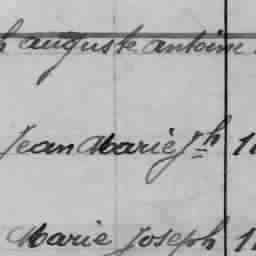 h auguste antoine
Jean Marie Jh 1
Marie Joseph 1